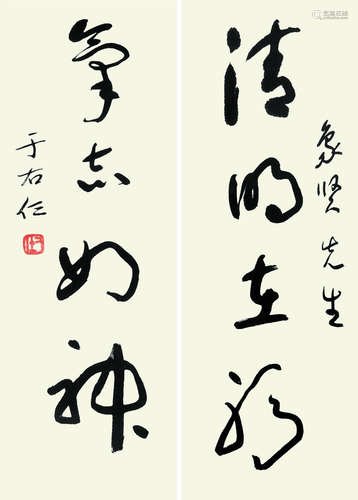 象贤先生
清明在躬
气志如神
于右任